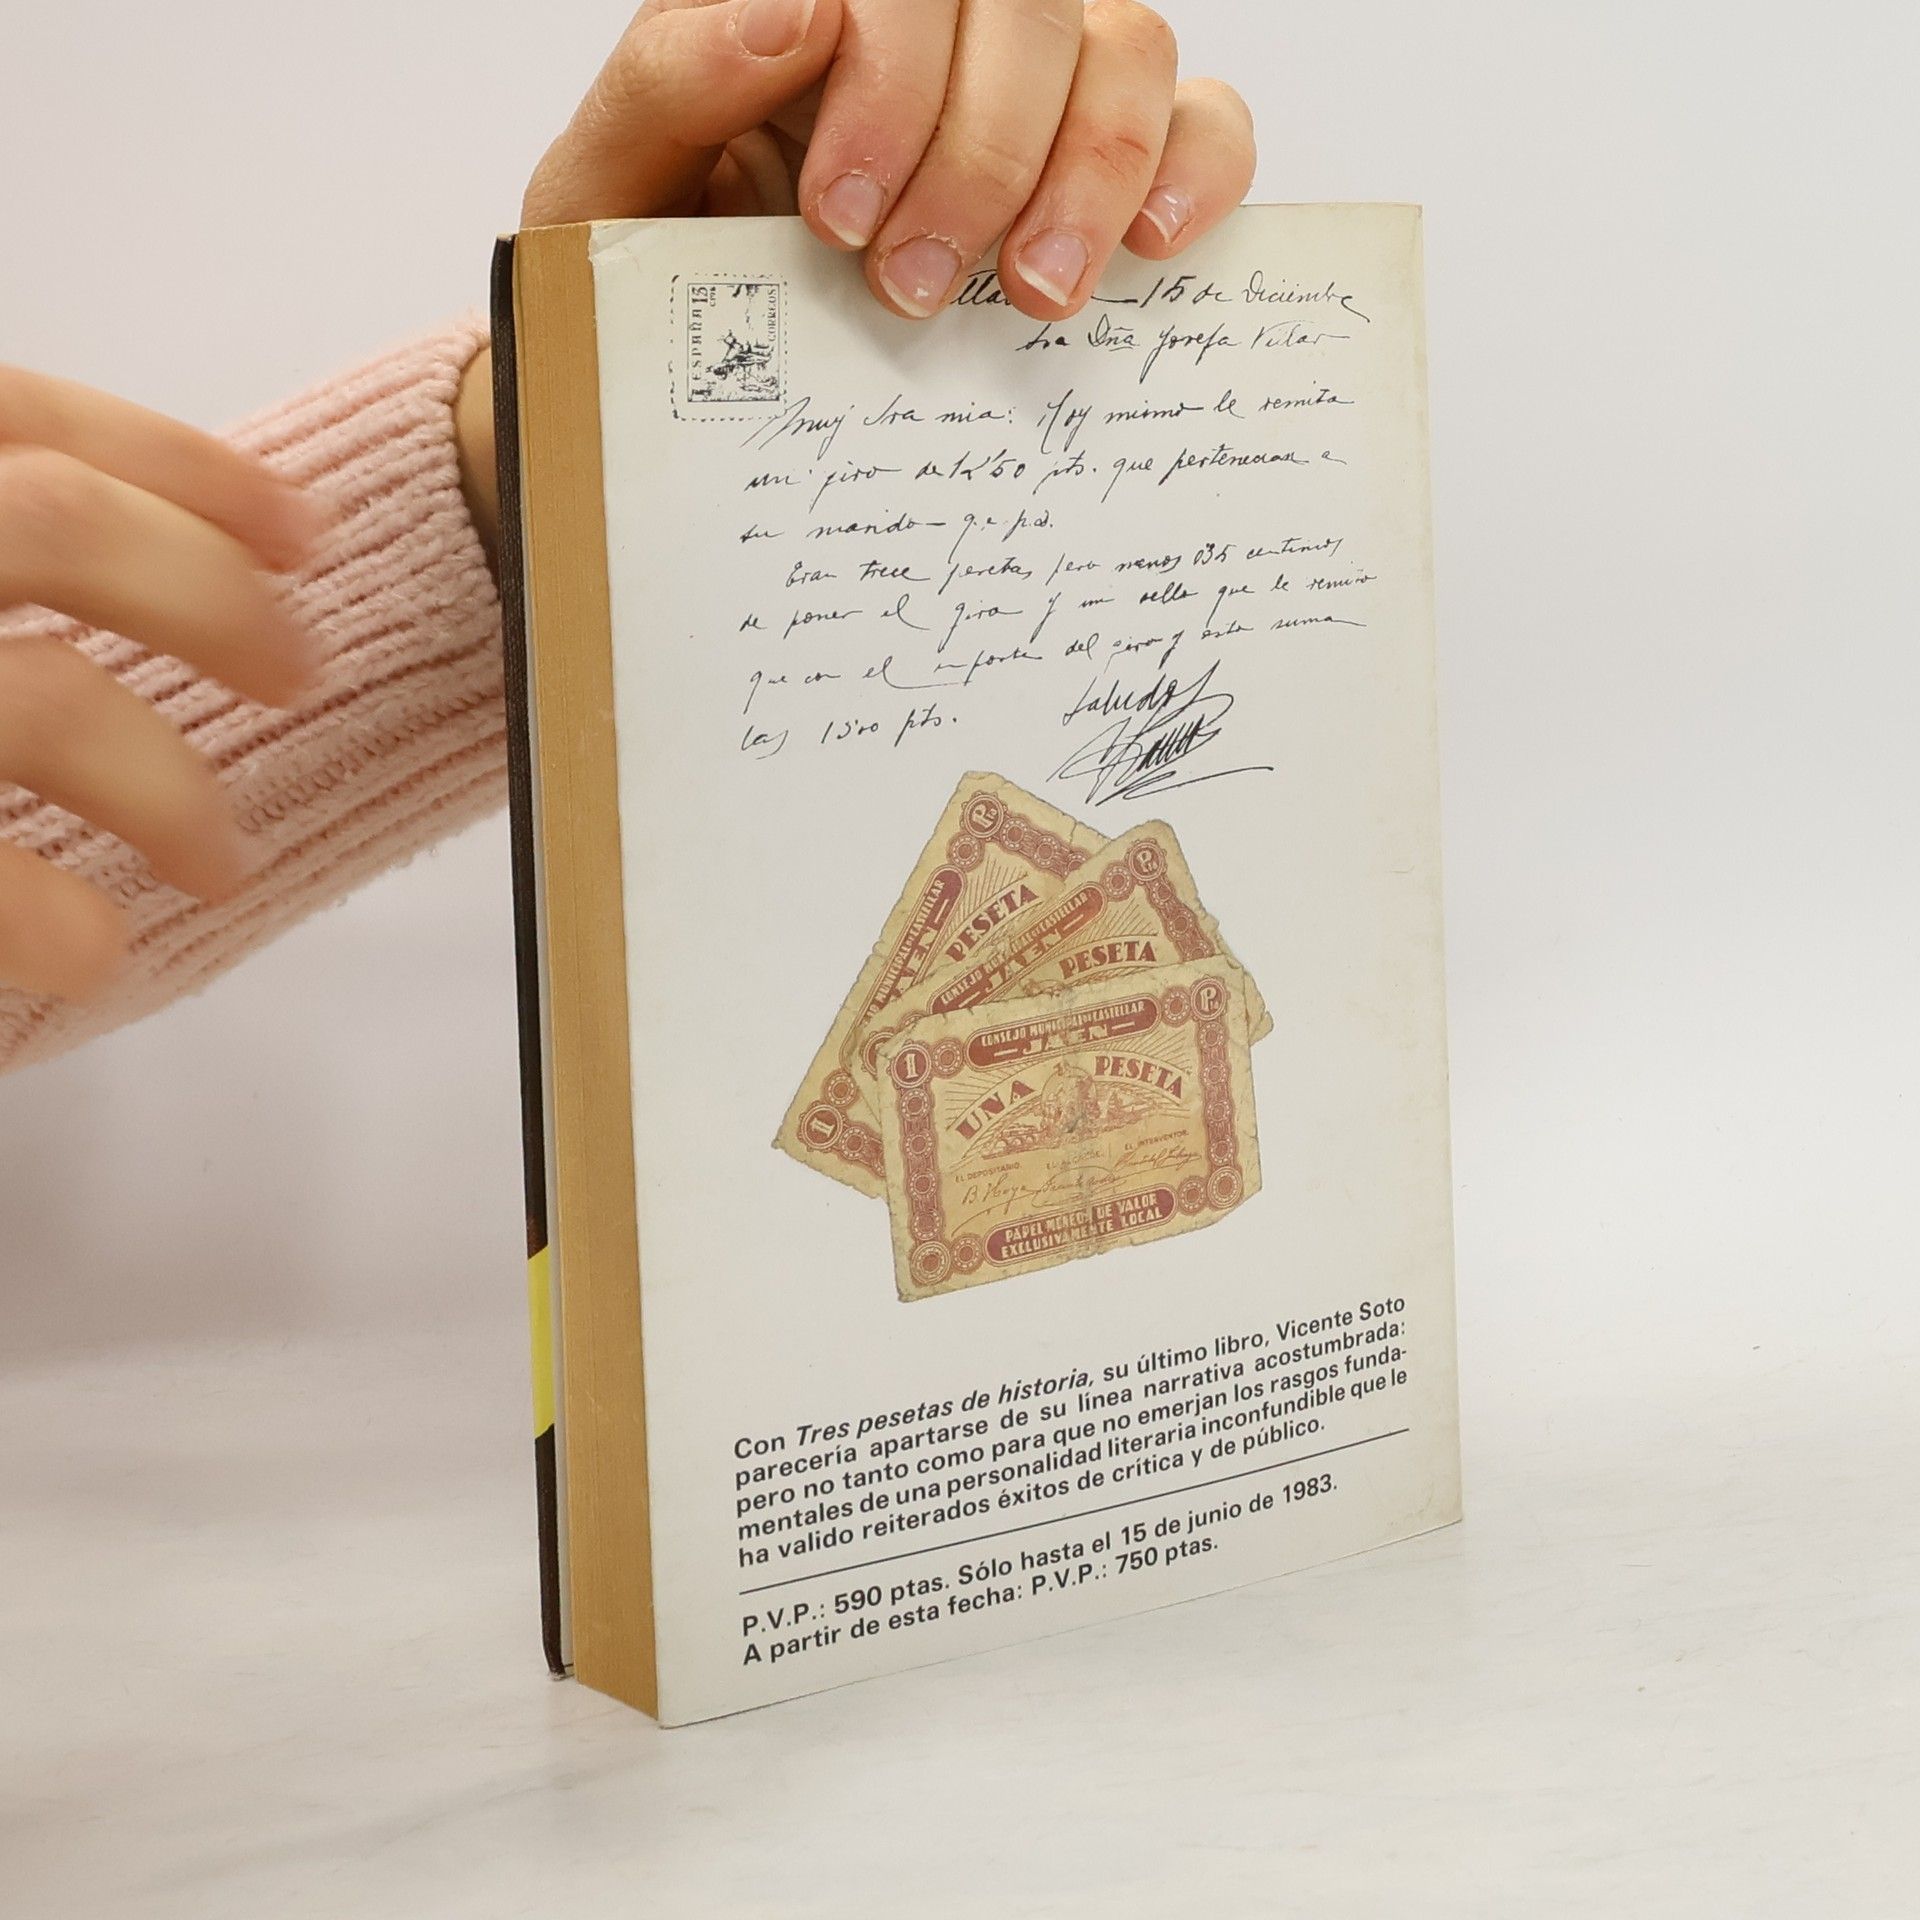 15 de Diciembre
Sra Dña Josefa Vilar
ESPAÑA 15 CTOS
CORREOS
Muy Sra mia: Hoy mismo le remito
un giro de 12'50 pts. que pertenecian a
su marido — q.e.p.d.
Eran trece pesetas pero menos 0'35 centimos
de poner el giro y un sello que le remito
que con el importe del giro y esto suman
las 13'00 pts.
Saludos
Pta
CONSEJO MUNICIPAL DE CASTELLAR
JAEN
PESETA
1
Pta
CONSEJO MUNICIPAL DE CASTELLAR
— JAEN —
PESETA
Pta
CONSEJO MUNICIPAL DE CASTELLAR
— JAEN —
1
UNA PESETA
EL DEPOSITARIO. EL ALCALDE. EL INTERVENTOR.
PAPEL MONEDA DE VALOR
EXCLUSIVAMENTE LOCAL
Con Tres pesetas de historia, su último libro, Vicente Soto
parecería apartarse de su línea narrativa acostumbrada:
pero no tanto como para que no emerjan los rasgos funda-
mentales de una personalidad literaria inconfundible que le
ha valido reiterados éxitos de crítica y de público.
P.V.P.: 590 ptas. Sólo hasta el 15 de junio de 1983.
A partir de esta fecha: P.V.P.: 750 ptas.